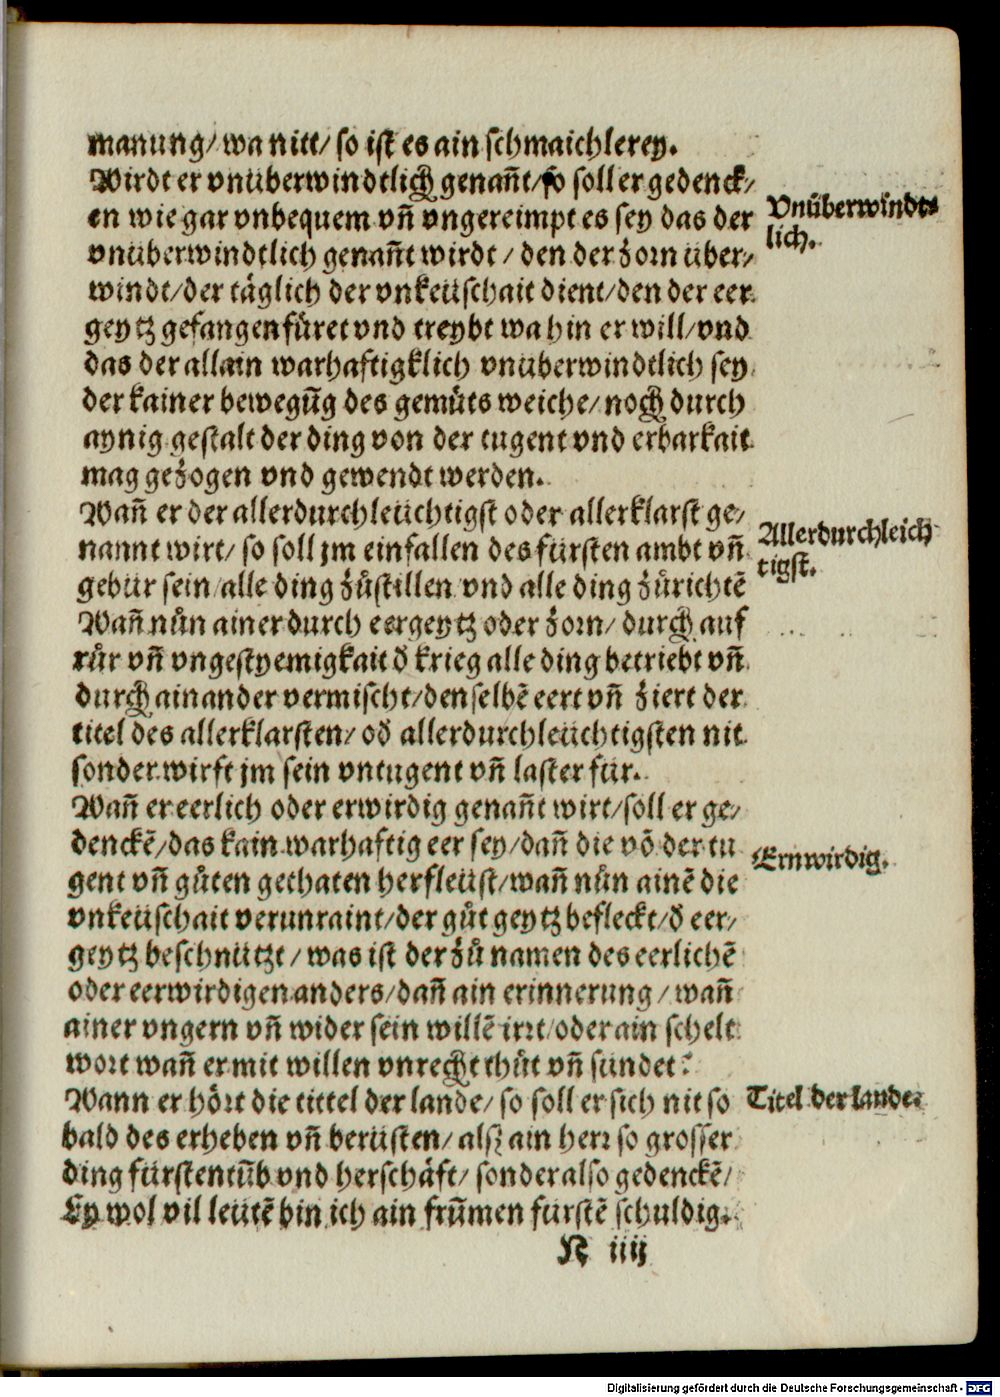 manung/ wa nitt/ so ist es ain schmaichlerey.
Wirdt er vnüberwindtlich genañt/ so soll er gedenck/
en wie gar vnbequem vñ vngereimpt es sey das der
vnüberwindtlich genañt wirdt / den der zorn über/
windt/ der täglich der vnkeüschait dient/ den der eer
geytz gefangen füret vnd treybt wa hin er will/ vnd
das der allain warhaftigklich vnüberwindtlich sey
der kainer bewegũg des gemüts weiche/ noch durch
aynig gestalt der ding von der tugent vnd erbarkait
mag gezogen vnd gewendt werden.
Vnüberwindt⸗
lich.
Wañ er der allerdurchleüchtigst oder allerklarst ge/
nannt wirt/ so soll jm einfallen des fürsten ambt vñ
gebür sein/ alle ding zůstillen vnd alle ding zůrichtẽ
Wañ nůn ainer durch eergeytz oder zorn/ durch auf
růr vñ vngestyemigkait ð krieg alle ding betriebt vñ
durch ainander vermischt/ denselbẽ eert vñ ziert der
titel des allerklarsten/ oð allerdurchleüchtigsten nit
sonder wirft jm sein vntugent vñ laster für.
Allerdurchleich
tigst.
Wañ er eerlich oder erwirdig genañt wirt/ soll er ge/
denckẽ/ das kain warhaftig eer sey/ dañ die võ der tu
gent vñ gůten gethaten herfleüst/ wañ nůn ainẽ die
vnkeüschait verunraint/ der gůt geytz befleckt/ ð eer/
geytz beschnützt / was ist der zů namen des eerlichẽ
oder eerwirdigen anders/ dañ ain erinnerung / wañ
ainer vngern vñ wider sein willẽ irrt/ oder ain schelt
wort wañ er mit willen vnrecht thůt vñ sündet?
Ernwirdig.
Wann er hört die tittel der lande/ so soll er sich nit so
bald des erheben vñ berüsten/ alsz ain herr so grosser
ding fürstentũb vnd herschäft/ sonder also gedenckẽ/
Ey wol vil leütẽ bin ich ain frũmen fürstẽ schuldig.
Titel der lande
N iiij
Digitalisierung gefördert durch die Deutsche Forschungsgemeinschaft - DFG